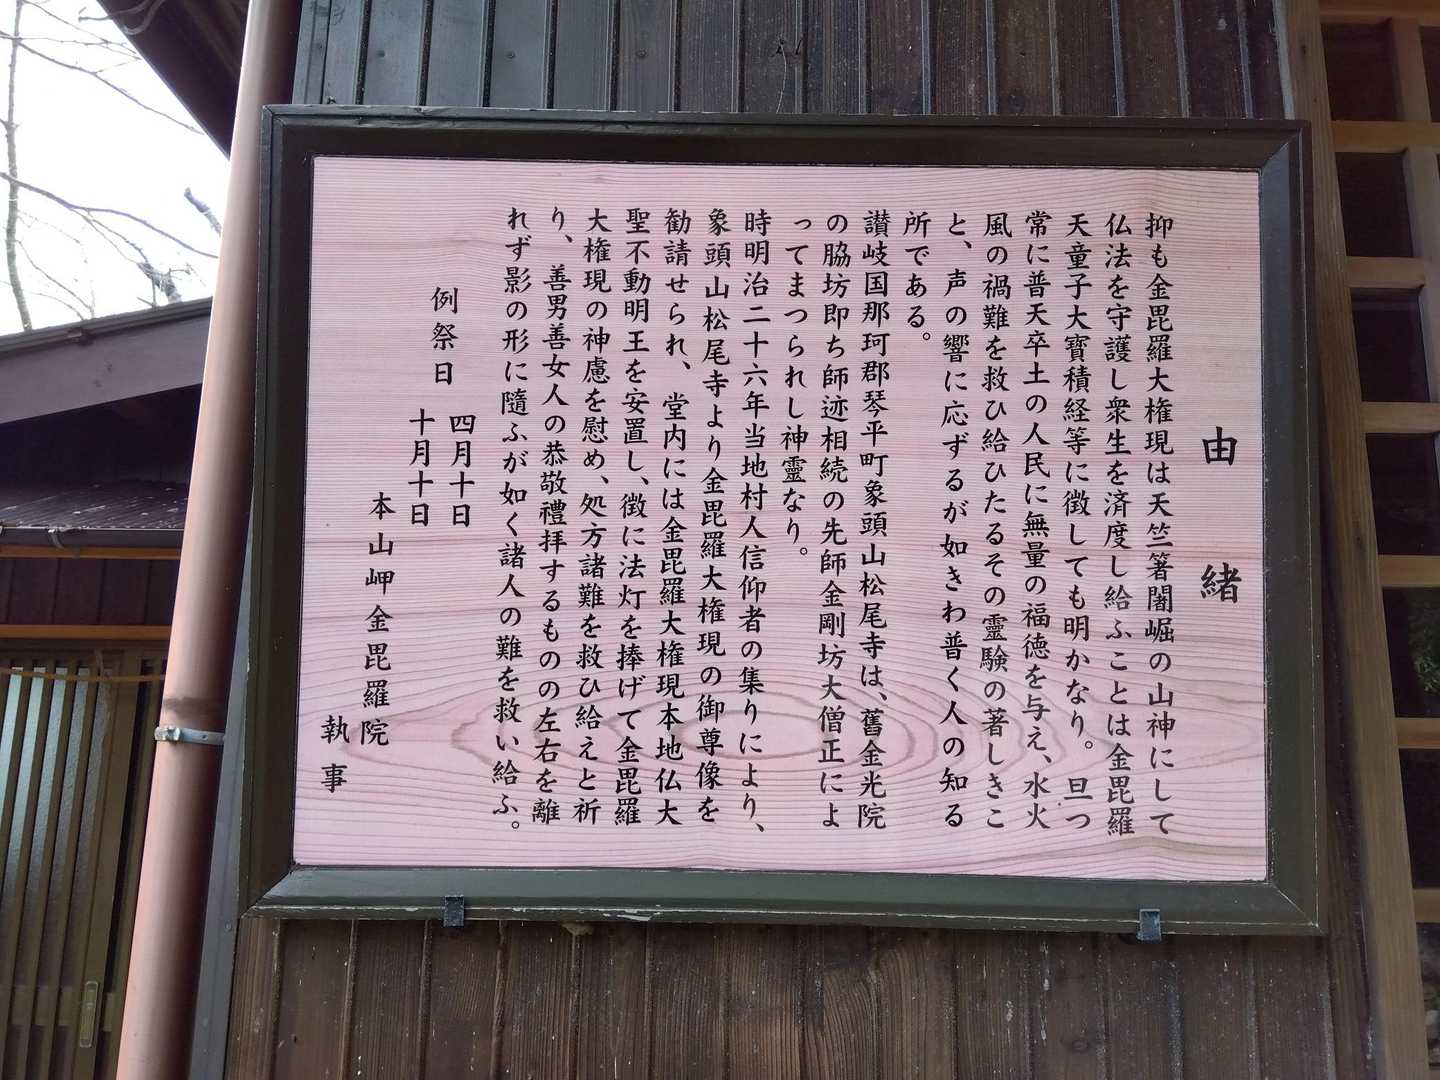 由緒
抑も金毘羅大権現は天竺箸闍崛の山神にして
仏法を守護し衆生を済度し給ふことは金毘羅
天童子大寶積経等に徴しても明かなり。旦つ
常に普天卒土の人民に無量の福徳を与え、水火
風の禍難を救ひ給ひたるその靈験の著しきこ
と、声の響に応ずるが如きわ普く人の知る
所である。
讃岐国那珂郡琴平町象頭山松尾寺は、舊金光院
の脇坊即ち師迹相続の先師金剛坊大僧正によ
ってまつられし神靈なり。
時明治二十六年当地村人信仰者の集りにより、
象頭山松尾寺より金毘羅大権現の御尊像を
勧請せられ、堂内には金毘羅大権現本地仏大
聖不動明王を安置し、徴に法灯を捧げて金毘羅
大権現の神慮を慰め、処方諸難を救ひ給えと祈
り、善男善女人の恭敬禮拝するものの左右を離
れず影の形に隨ふが如く諸人の難を救い給ふ。
例祭日 四月十日
十月十日
本山岬金毘羅院
執事